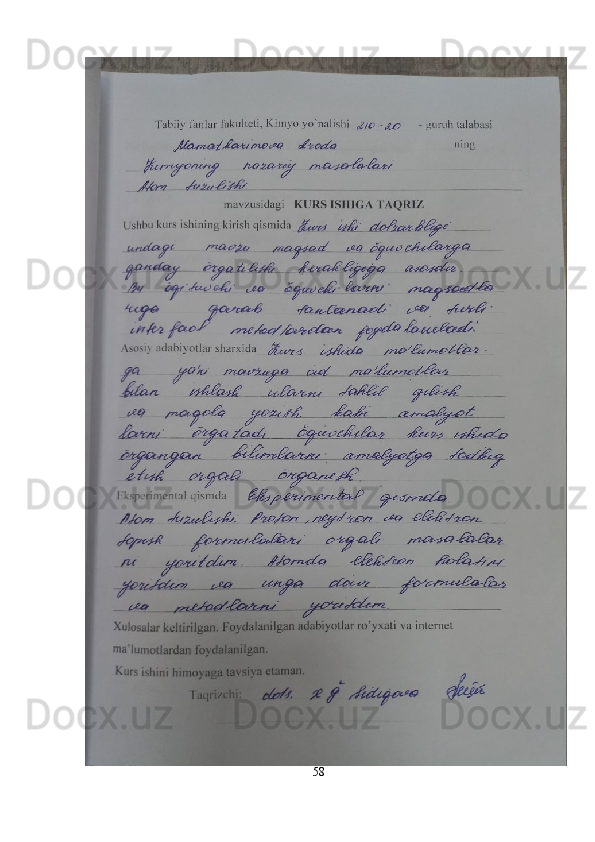 Docx.uz Docx.uz Docx.uz
Tabiiy fanlar fakulteti, Kimyo yo`nalishi 210-20 - guruh talabasi
Mamatkarimova Iroda ning
Kimyoning nazariy masalalari
Atom tuzulishi
mavzusidagi KURS ISHIGA TAQRIZ
Ushbu kurs ishining kirish qismida Kurs ishi dolzarbligi
undagi mavzu maqsad va o'quvchilarga
qanday o'rgatilishi kerakligiga asosdir
Bu o'qituvchi va o'quvchilarni maqsadla
riga qarab tanlanadi va turli
interfaol metodlardan foydalaniladi.
Asosiy adabiyotlar sharxida Kurs ishida ma'lumotlar-
ga ya'ni mavzuga oid ma'lumotlar
bilan ishlash ularni tahlil qilish
va maqola yozish kabi amaliyot
larni o'rgatadi o'quvchilar kurs ishida
o'rgangan bilimlarni amalyotga tadbiq
etish orqali o'rganish
Eksperimental qismda Eksperimental qismda
Atom tuzulishi. Proton, neytron va elektron
topish formulalari orqali masalalar
ni yoritdim. Atomda elektron holatini
yoritdim va unga doir formulalar
va metodlarni yoritdim
Xulosalar keltirilgan. Foydalanilgan adabiyotlar ro`yxati va internet
ma`lumotlardan foydalanilgan.
Kurs ishini himoyaga tavsiya etaman.
Taqrizchi: dots. X Ğ Sidiqova
58